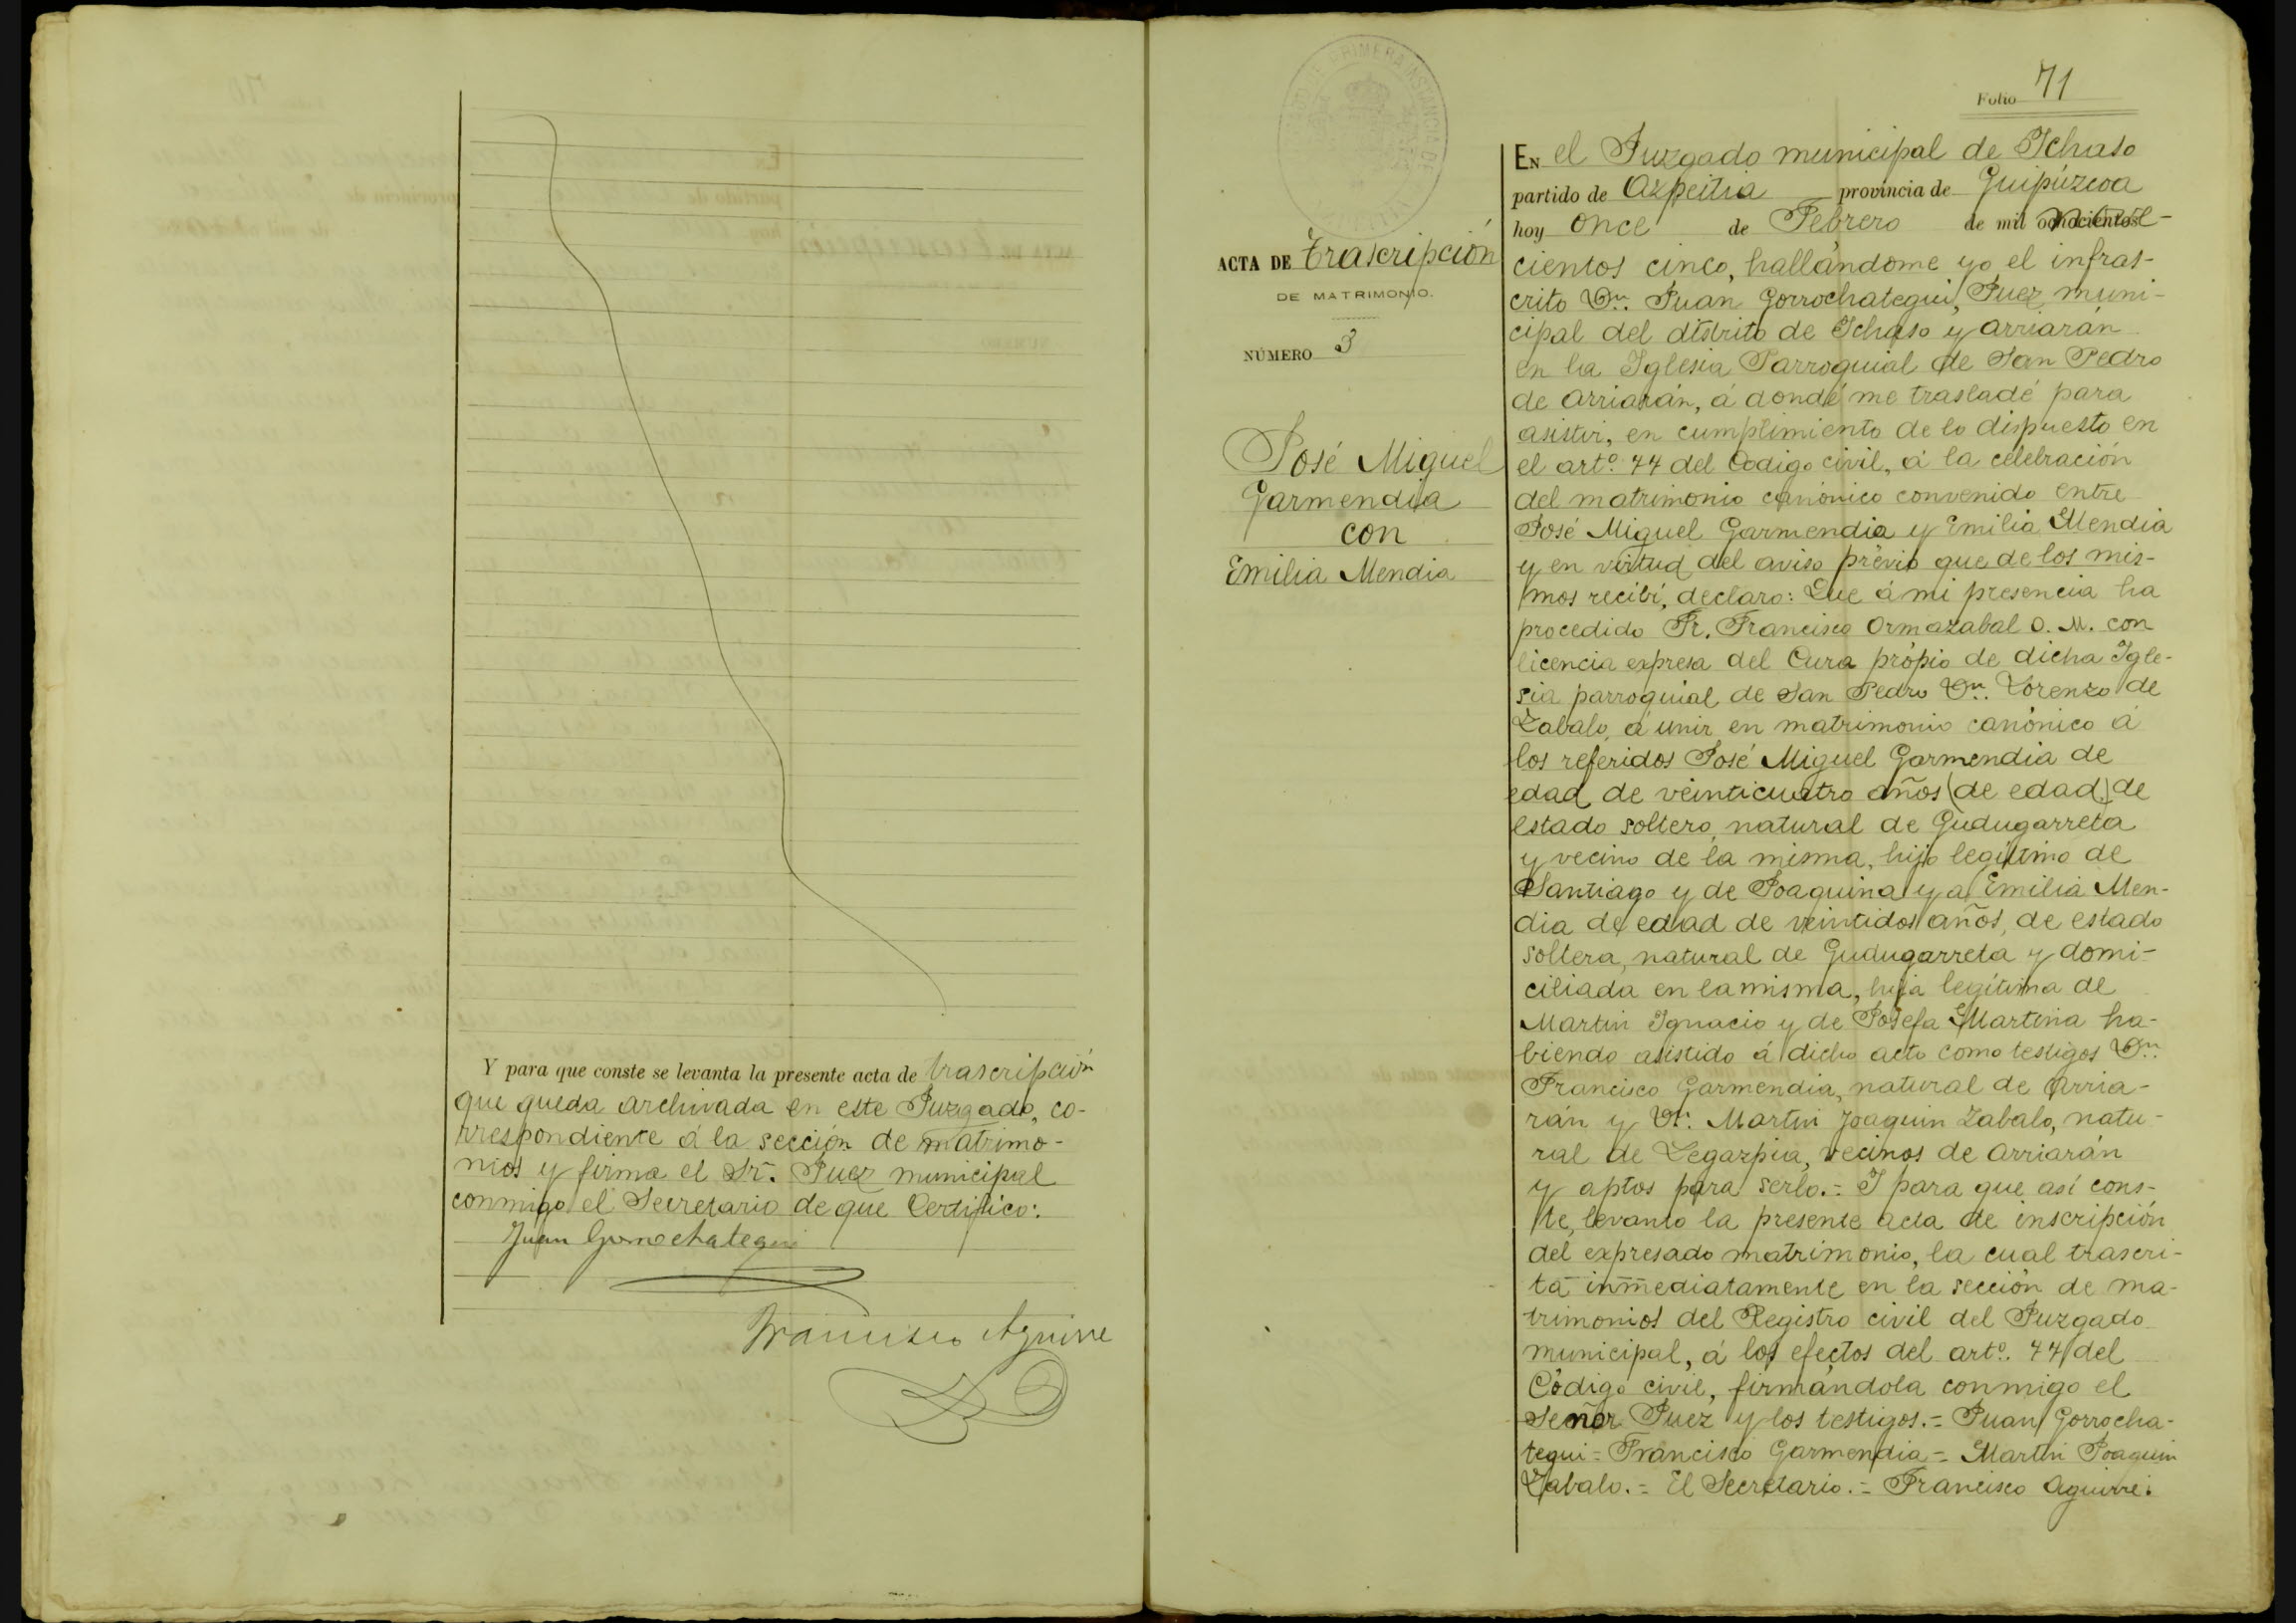 Y para que conste se levanta la presente acta de trascripción
que queda archivada en este Juzgado, co-
rrespondiente á la sección de matrimo-
nios y firma el Sr. Juez municipal
conmigo el Secretario de que Certifico:.
Juan Gorrochategui
Francisco Aguirre
PRIMERA INSTANCIA DE
Folio 71
ACTA DE trascripción
DE MATRIMONIO.
NÚMERO 3
José Miguel
Garmendia
con
Emilia Mendia
EN el Juzgado municipal de Ichaso
partido de Azpeitia provincia de Guipúzcoa
hoy once de Febrero de mil ochocientos nove-
cientos cinco, hallándome yo el infras-
crito Dn. Juan Gorrochategui, Juez muni-
cipal del distrito de Ichaso y Arriarán
en la Iglesia Parroquial de San Pedro
de Arriarán, á donde me trasladé para
asistir, en cumplimiento de lo dispuesto en
el arto. 77 del Codigo civil, á la celebración
del matrimonio canónico convenido entre
José Miguel Garmendia y Emilia Mendia
y en virtud del aviso prévio que de los mis-
mos recibí, declaro: Que á mi presencia ha
procedido Fr. Francisco Ormazabal O. M. con
licencia expresa del Cura própio de dicha Igle-
sia parroquial de San Pedro Dn. Lorenzo de
Zabalo, á unir en matrimonio canónico á
los referidos José Miguel Garmendia de
edad de veinticuatro años (de edad) de
estado soltero, natural de Gudugarreta
y vecino de la misma, hijo legítimo de
Santiago y de Joaquina y a Emilia Men-
dia de edad de veintidos años, de estado
soltera, natural de Gudugarreta y domi-
ciliada en la misma, hija legítima de
Martin Ignacio y de Josefa Martina ha-
biendo asistido á dicho acto como testigos Dn.
Francisco Garmendia, natural de Arria-
rán y Dn. Martin Joaquin Zabalo, natu-
ral de Legazpia, vecinos de Arriarán
y aptos para serlo.= I para que así cons-
te, levanto la presente acta de inscripción
del expresado matrimonio, la cual trascri-
ta inmediatamente en la sección de ma-
trimonios del Registro civil del Juzgado
municipal, á los efectos del arto. 77 del
Código civil, firmándola conmigo el
Señor Juez y los testigos.= Juan Gorrocha-
tegui= Francisco Garmendia= Martin Joaquin
Zabalo.= El Secretario.= Francisco Aguirre.